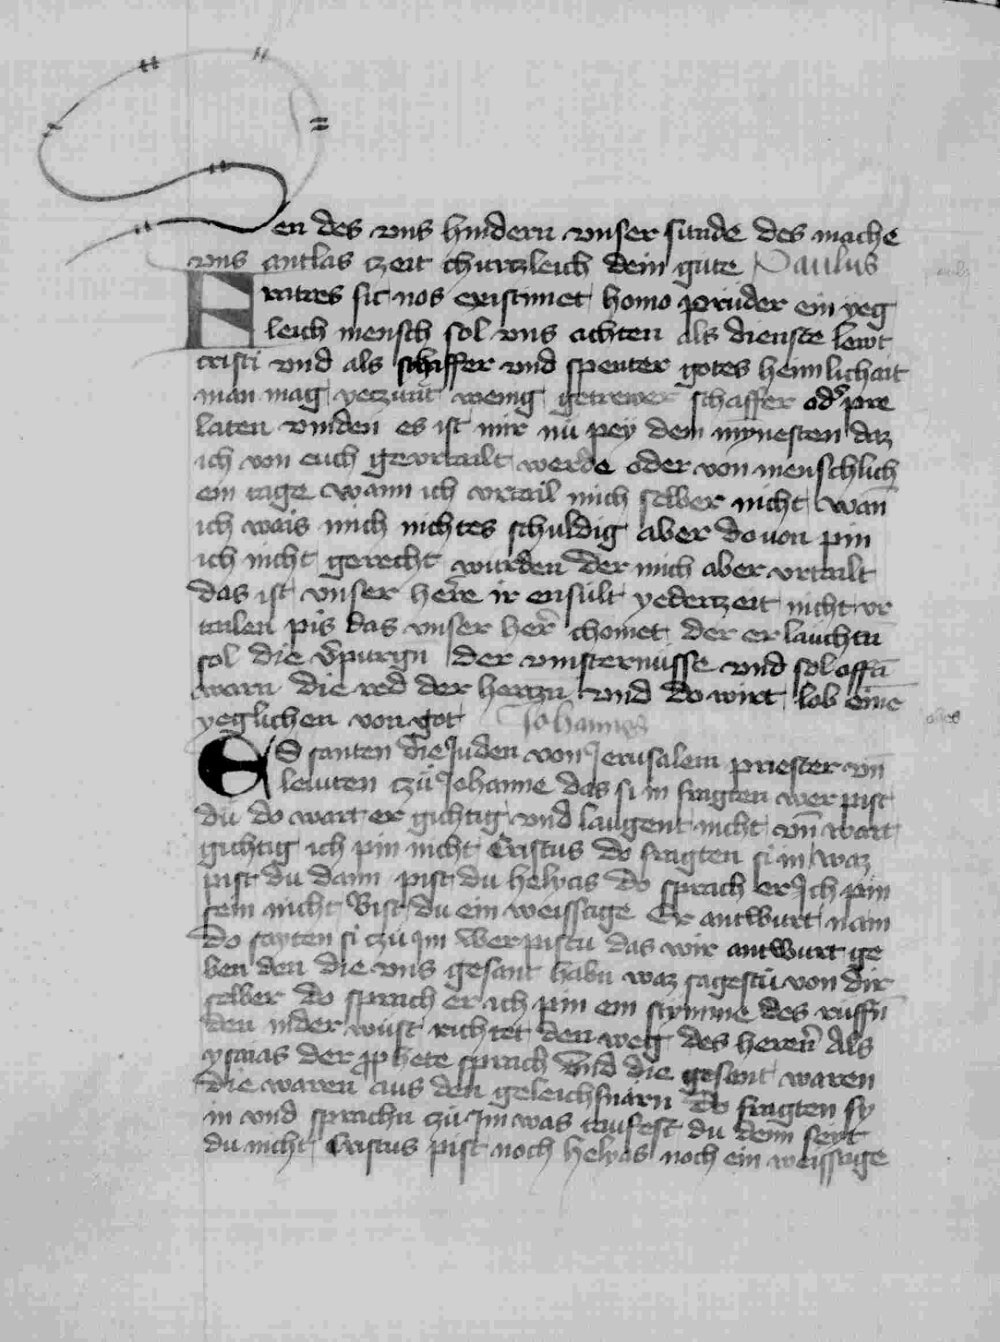 en des vns hindern vnser sunde des mache
vns antlas czeit churczleich dein gute Paulus
Fratres sic nos existimet homo pruder ein yeg
leich mensch sol vns achten als dienste lewt
cristi vnd als schaffer vnd spenter gotes heimlichait
man mag yeczunt wenig getrewer schaffer od̛ pre
laten vinden es ist mir nü pey dem mynesten daz
ich von euch gevrtailt werde oder von menschlich
em tage wann ich vrtail mich selber nicht wan̄
ich wais mich nichtes schuldig aber do von pin
ich nicht gerecht wurden der mich aber vrtailt
das ist vnser her̄e ir ensült yederczeit nicht vr
tailen pis das vnser her̄ chomet der erlauchtn̄
sol die v̄purgn der vinsternüsse vnd sol offn̄
warn die red der herczn vnd do wirt lob eine̅
yeglichen von got Johannes
ES santen die Juden von Jerusalem priester vn̄
leuiten czü Johanne das si in fragten wer pist
dü do wart er gichtig vnd laugent nicht vn̄ wart
gichtig ich pin nicht Cristus do fragten si in waz
pist du dann pist du helyas do sprach er Ich pin
sein nicht Bist du ein weissage Er antwurt nain
do sayten si czü im Wer pistu das wir antwurt ge
ben den die vns gesant habn waz sagestü von dir
selber do sprach er ich pin ein stymme des rüffn̄
den inder wüst richtet den weg des heren̄ Als
ysaias der ꝓphete sprach Vnd die gesant waren
die waren aus den geleichsnärn do fragten sy
in vnd sprachn czü Im was taufest du denn seyt
du nicht Cristus pist noch helyas noch ein weissage